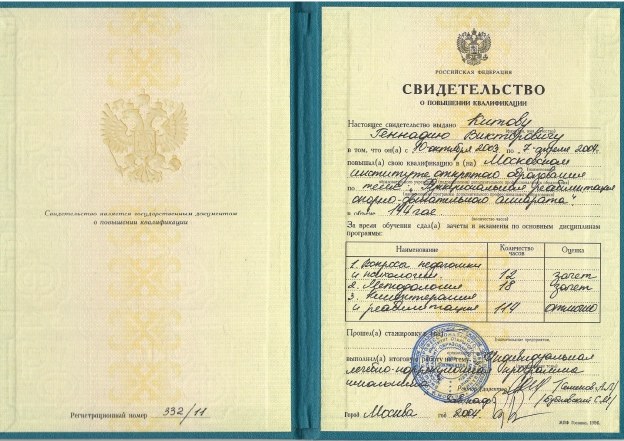 Свидетельство является государственным документом
о повышении квалификации
Регистрационный номер 332/11
РОССИЙСКАЯ ФЕДЕРАЦИЯ
СВИДЕТЕЛЬСТВО
О ПОВЫШЕНИИ КВАЛИФИКАЦИИ
Настоящее свидетельство выдано Китову
Геннадию Викторовичу
в том, что он(а) с 10 октября 2003 по 7 апреля 2004
повысил(а) свою квалификацию в (на) Московском
институте открытого образования
по теме: "Функциональная реабилитация
опорно-двигательного аппарата"
в объеме 144 час
(количество часов)
За время обучения сдал(а) зачеты и экзамены по основным дисциплинам
программы:
Наименование Количество часов Оценка
1. Вопросы педагогики
и психологии 12 зачет
2. Методология 18 зачет
3. Кинезитерапия
и реабилитация 114 отлично
Прошел(а) стажировку в (на)
(наименование предприятия,
выполнил(а) итоговую работу на тему Индивидуальная
лечебно-коррекционная программа
школьника
Ректор (директор) Семенов А.Л.
Город Москва год 2004